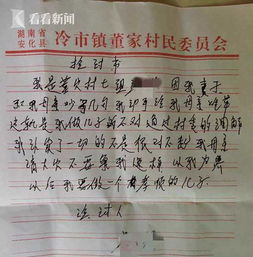 看看新闻
KANKANEWS
湖南省
安化县
冷市镇董家村民委员会
检讨书
我是董家村七组 因我妻子
和我母亲吵了几句 我动手
这就是我做儿子的不对 通过村委的调解
我认识了一切的不是 很对不起我母亲
请大家不要像我这样 以我为界
以后我要做一个有孝顺的儿子
检讨人